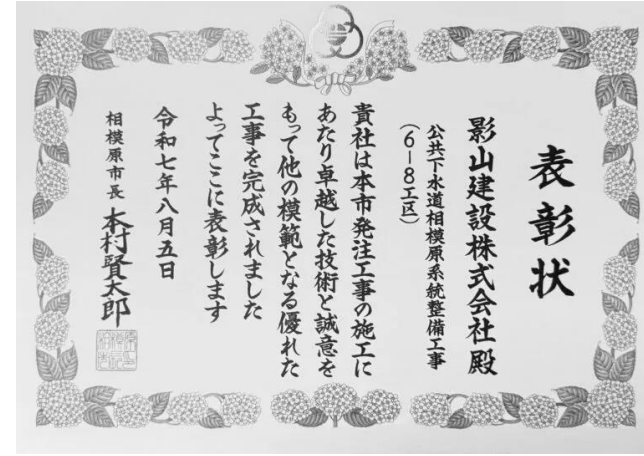 表彰状
影山建設株式会社殿
公共下水道相模原系統整備工事
(6-8工区)
貴社は本市発注工事の施工に
あたり卓越した技術と誠意を
もって他の模範となる優れた
工事を完成されました
よってここに表彰します
令和七年八月五日
相模原市長 本村賢太郎